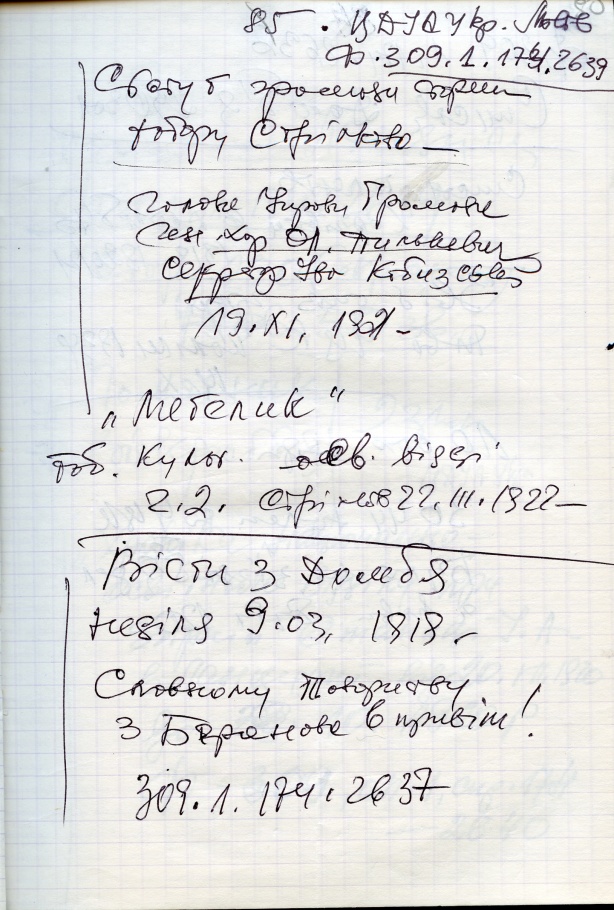 85. ЦДІАУкр. Львів
Ф. 309.1.174.2639
Статут громади
табору Стрілково
Голова Управи Громади
Ген. Хор Ол. Пилькевич
Секретар Іван
19.XI. 192
"Метелик"
Тов. Культ. осв. відді
ч.2. Стрілков 22.III.1922
Вісти з Домбя
Неділя 9.03.1919.
Славному Товариству
з Баранова в привіт!
309.1.174.2637